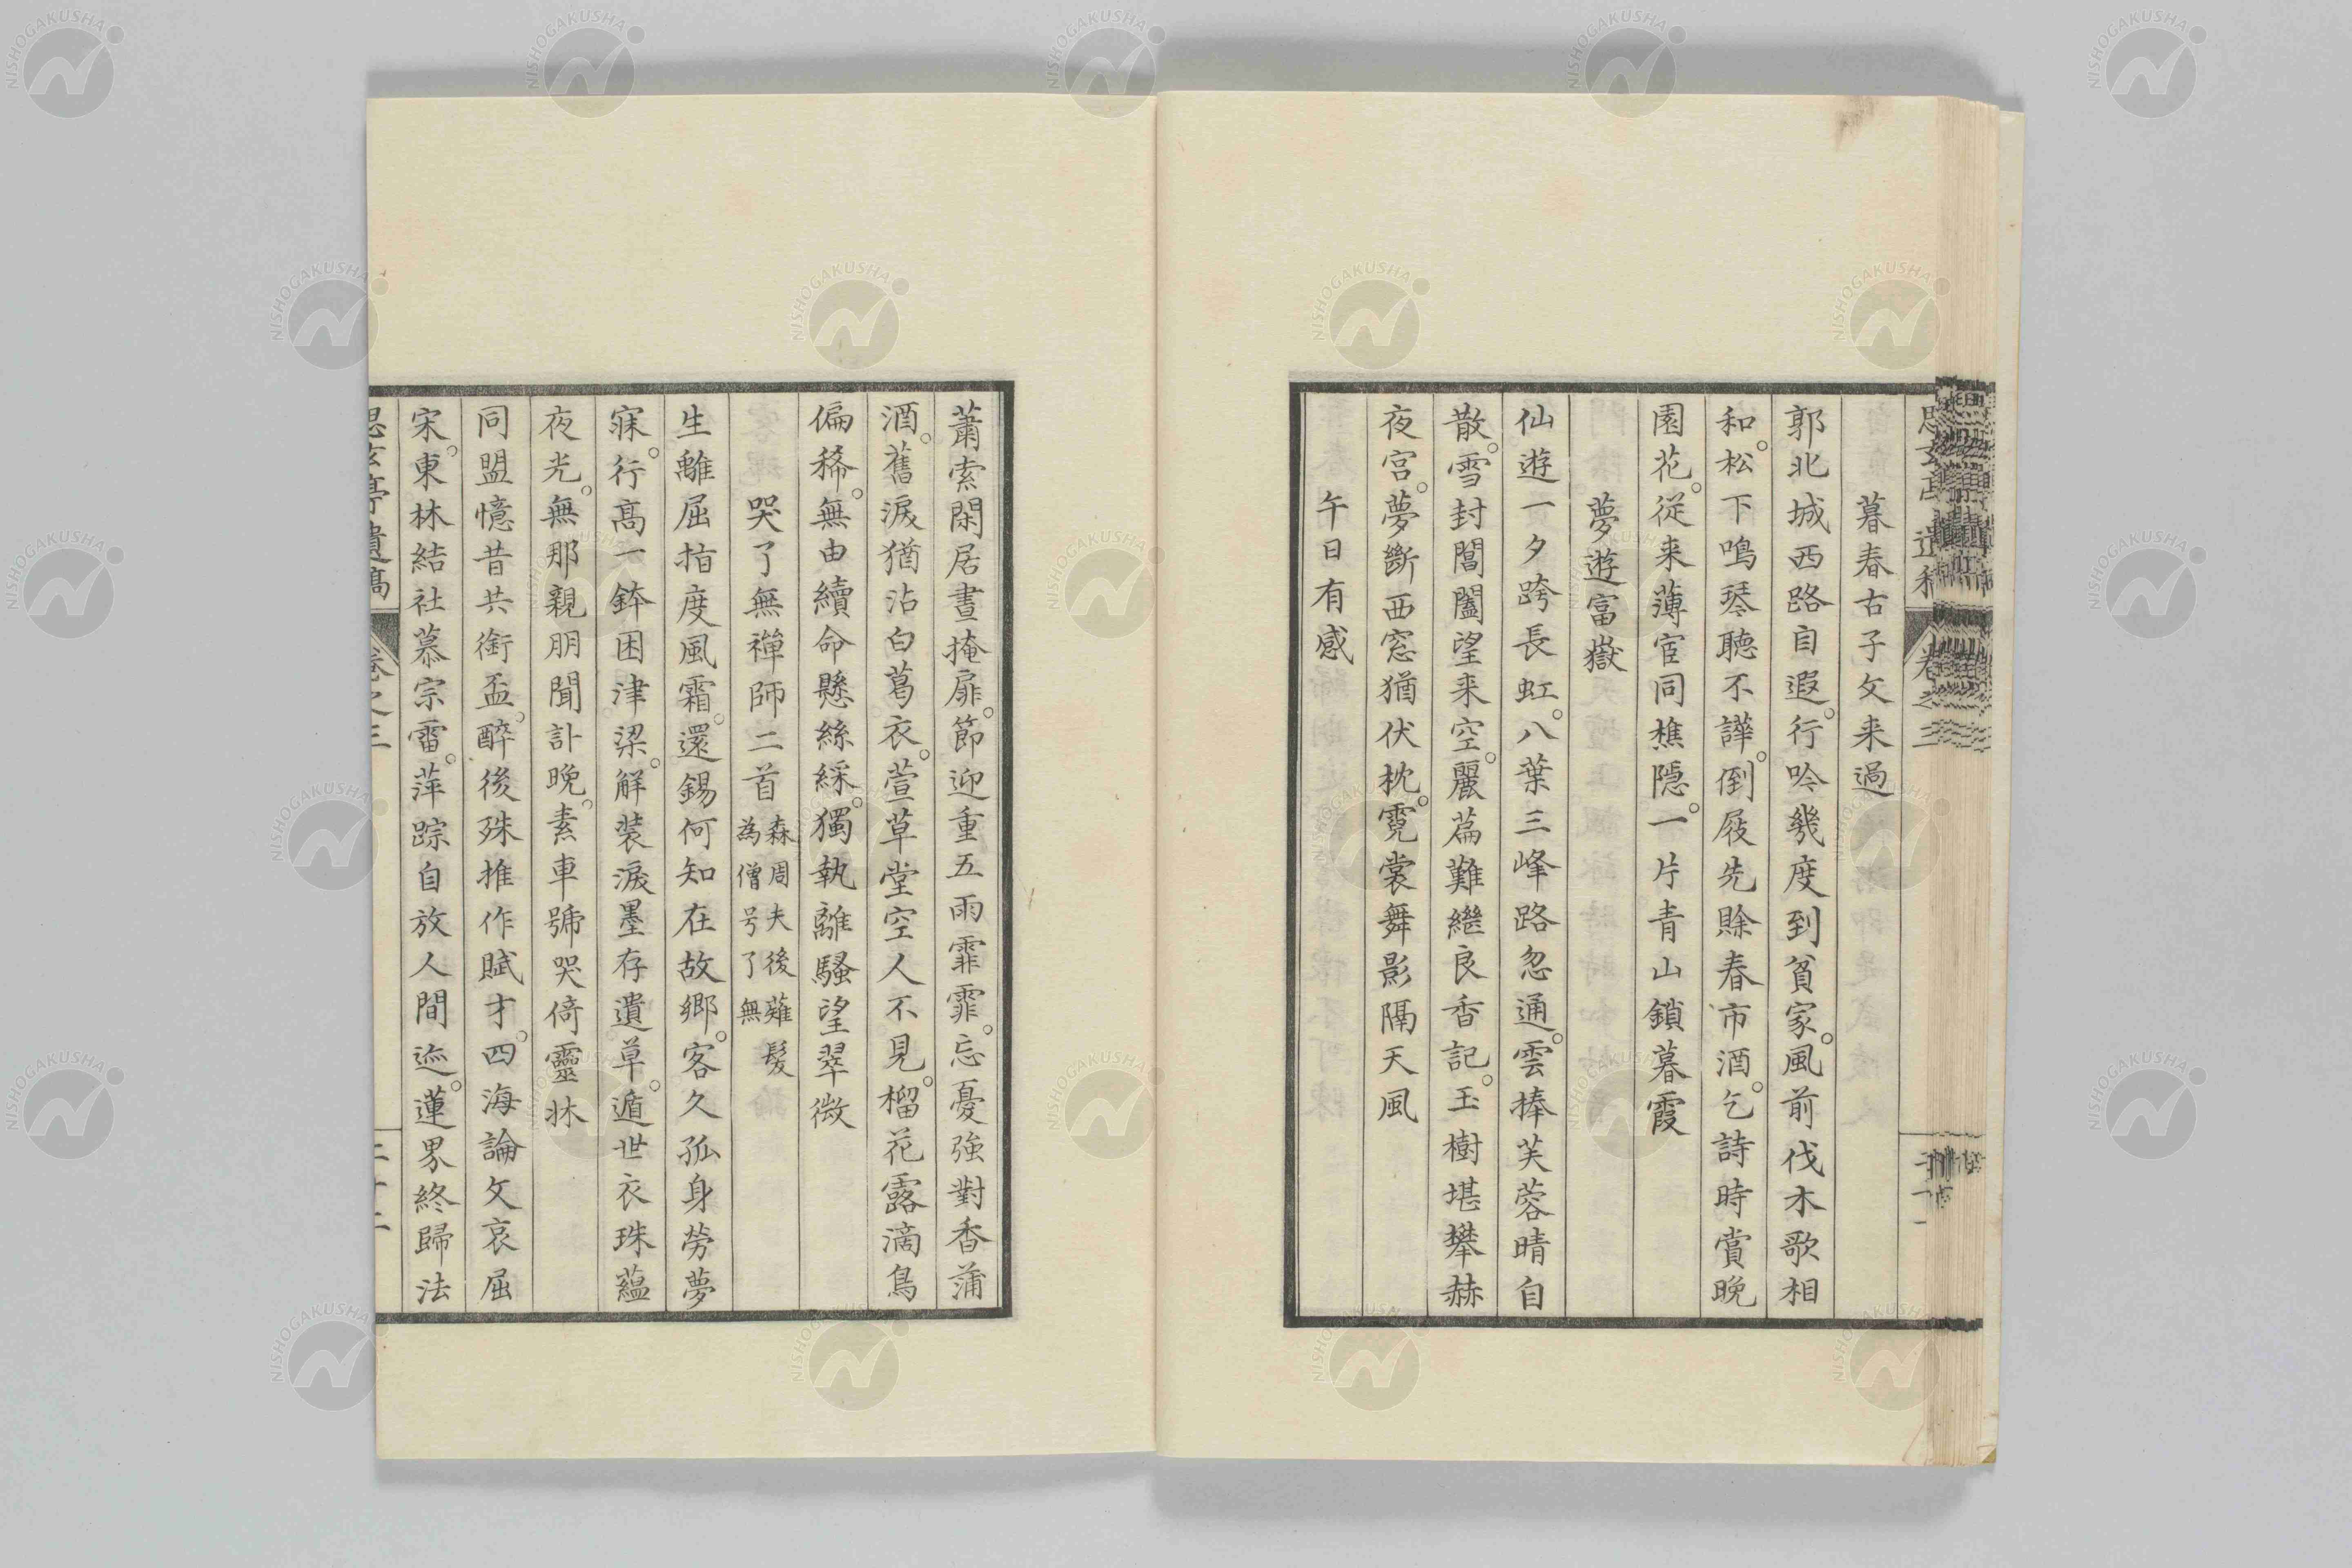 暮春古子文来過
郭北城西路自遐。行吟幾度到貧家。風前伐木歌相
和。松下鳴琴聽不譁。倒屐先賒春市酒。乞詩時賞晩
園花。従来薄宦同樵隠。一片青山鎖暮霞
夢遊富嶽
仙遊一夕跨長虹。八葉三峰路忽通。雲捧芙蓉晴自
散。雪封閶闔望来空。麗篇難継良香記。玉樹堪攀赫
夜宮。夢斷西窓猶伏枕。霓裳舞影隔天風
午日有感
蕭索閑居晝掩扉。節迎重五雨霏霏。忘憂強對香蒲
酒。舊淚猶沾白葛衣。萱草堂空人不見。榴花露滴鳥
偏稀。無由續命懸絲綵。獨執離騒望翠微
哭了無禅師二首 森周夫後薙髮
為僧号了無
生離屈指度風霜。還錫何知在故郷。客久孤身勞夢
寐。行高一鉢困津梁。解装淚墨存遺草。遁世衣珠蘊
夜光。無那親朋聞訃晩。素車號哭倚靈牀
同盟憶昔共銜盃。醉後殊推作賦才。四海論文哀屈
宋。東林結社慕宗雷。萍踪自放人間迹。蓮界終歸法
思玄亭遺稿 卷之三 二十二
NISHOGAKUSHA